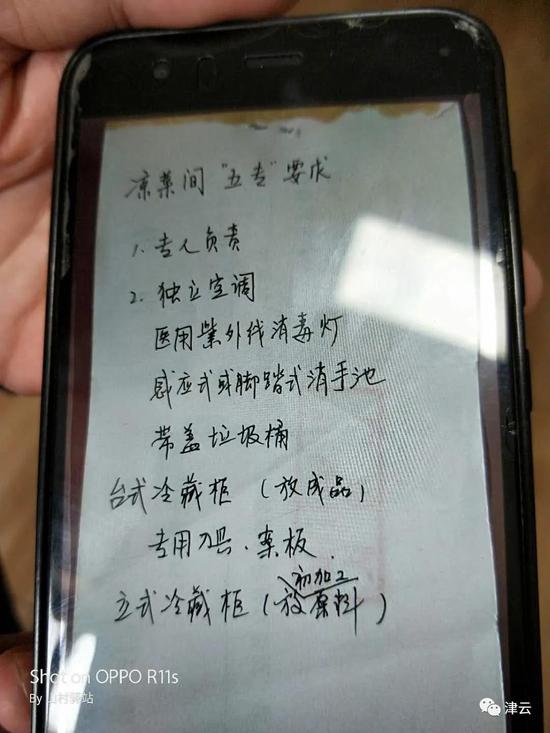 凉菜间“五专”要求
1. 专人负责
2. 独立空调
医用紫外线消毒灯
感应式或脚踏式消手池
带盖垃圾桶
台式冷藏柜（放成品）
专用刀具、案板
初加工
立式冷藏柜（放原料）
Shot on OPPO R11s
By 山村驿站
津云